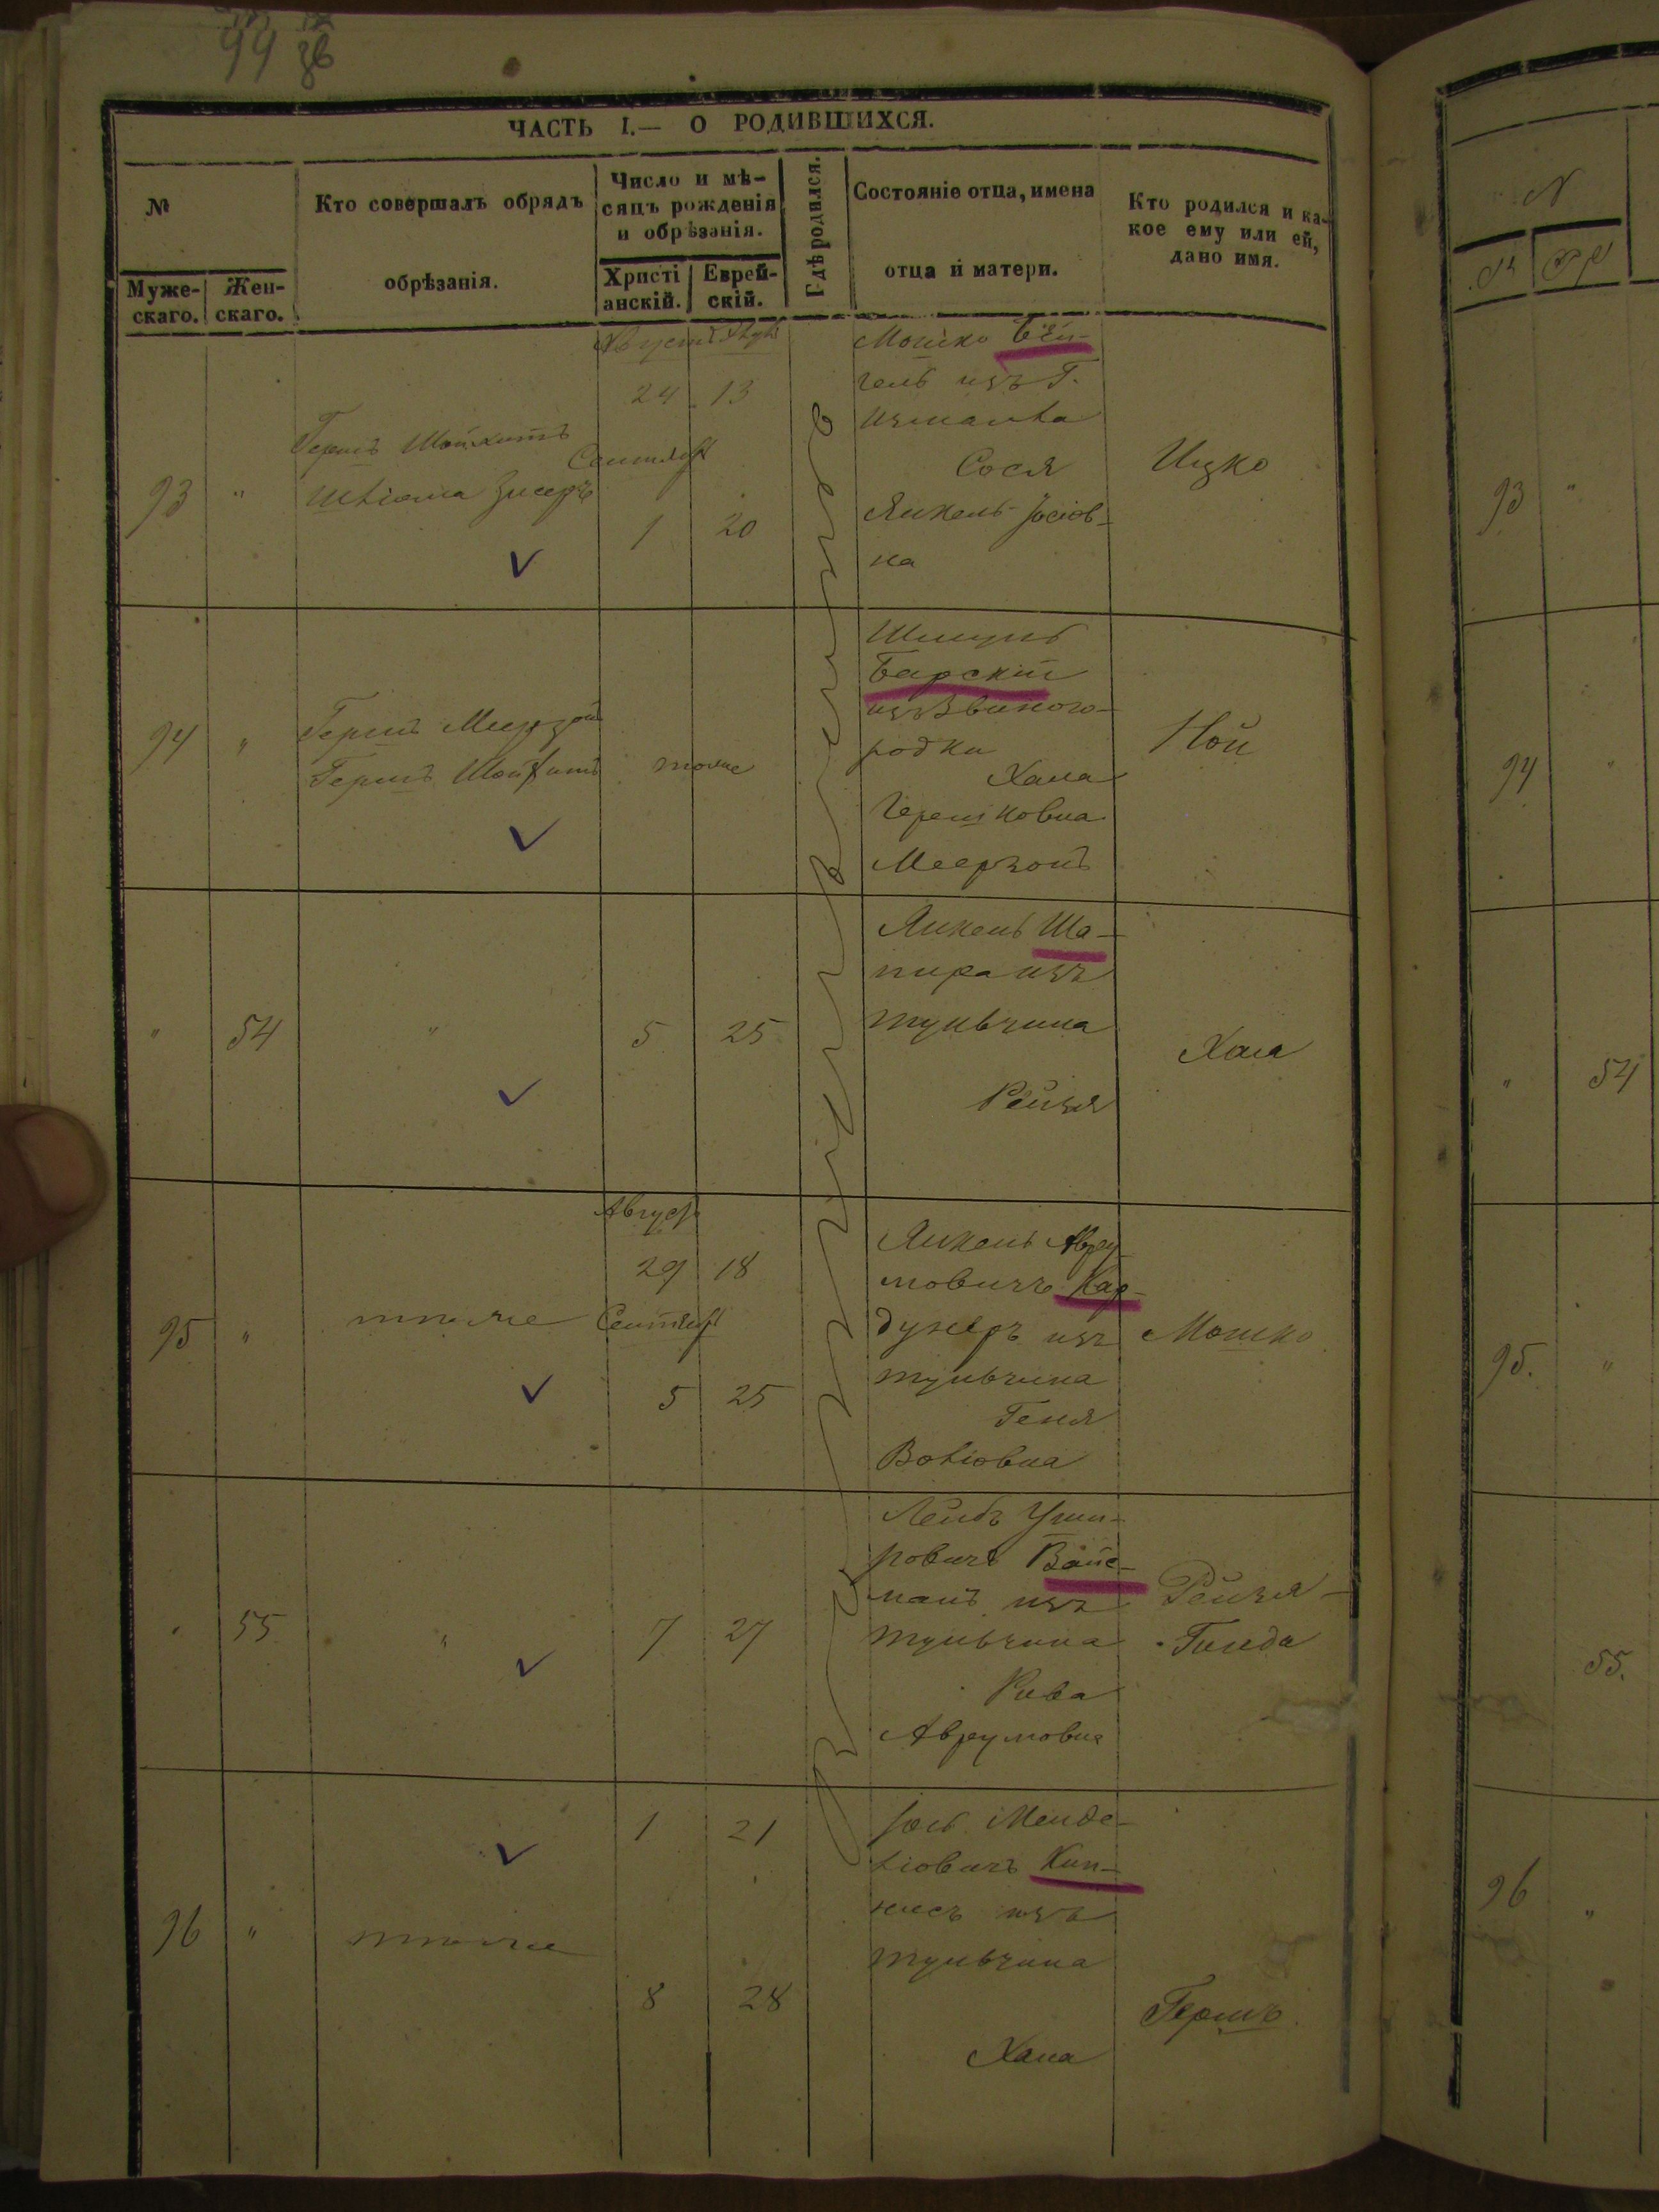 99
ЧАСТЬ I.— О РОДИВШИХСЯ.
№
Муже-
скаго.
Жен-
скаго.
Кто совершалъ обрядъ
обрѣзанія.
Число и мѣ-
сяцъ рожденія
и обрѣзанія.
Христі
анскій.
Еврей-
скій.
Гдѣ родился.
Состояніе отца, имена
отца и матери.
Кто родился и ка-
кое ему или ей,
дано имя.
93 "
Гершъ Шойхитъ
Августъ
24 13
Сентябр
1 20
Мошко
изъ Г.
Измаила
Сося
Янкель Iосіов-
на
Ицко
94 "
Гершъ
Гершъ Шойхитъ
тоже
Шмуль
Барскій
изъ Звиного-
родки
Хана
Гершковна
Меерзонъ
Ной
" 54
"
5 25
Янкель Ша-
пира изъ
тульчина
Рейзя
Хая
95 "
тоже
Август
29 18
Сентябр
5 25
Янкель Авру
мовичъ Кар-
дунеръ изъ
тульчина
Геня
Волiовна
Мошко
" 55
"
7 27
Лейбъ
ровичъ Вайс-
манъ изъ
тульчина
Рива
Аврумовна
Рейзя-
Гинда
96 "
тоже
1 21
8 28
Iось Менде-
лiовичъ Кип-
нисъ изъ
тульчина
Хана
Гершъ
N
93 "
94 "
" 54
95. "
55.
96 "